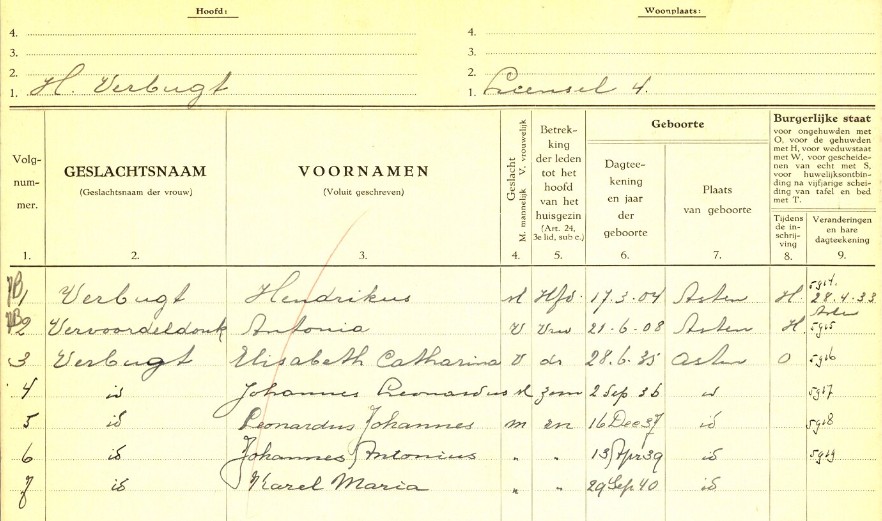 Hoofd: Woonplaats:
4. 4.
3. 3.
2. 2.
1. H. Verbugt 1. Leensel 4.
Volg-num-mer. GESLACHTSNAAM (Geslachtsnaam der vrouw) VOORNAMEN (Voluit geschreven) Geslacht M. mannelijk V. vrouwelijk Betrek-king der leden tot het hoofd van het huisgezin (Art. 24, 3e lid, sub c.) Geboorte Dagtee-kening en jaar der geboorte Plaats van geboorte Burgerlijke staat voor ongehuwden met O, voor de gehuwden met H, voor weduwstaat met W, voor gescheide-nen van echt met S, voor huwelijksontbin-ding na vijfjarige schei-ding van tafel en bed met T. Tijdens de in-schrij-ving Veranderingen en hare dagteekening
1. 2. 3. 4. 5. 6. 7. 8. 9.
1 Verbugt Hendrikus M Hfd. 17.3.04 Asten H. 28.4.33 Asten
2 Vervoordeldonk Antonia V Vrw 21-6-08 Asten H.
3 Verbugt Elisabeth Catharina V dr 28.6.35 Asten O
4 id Johannes Leonardus M zoon 2 Sep 36 id
5 id Leonardus Johannes m zn 16 Dec 37 id
6 id Johannes Antonius " " 13 Apr 39 id
7 id Karel Maria " " 29 Sep 40 id